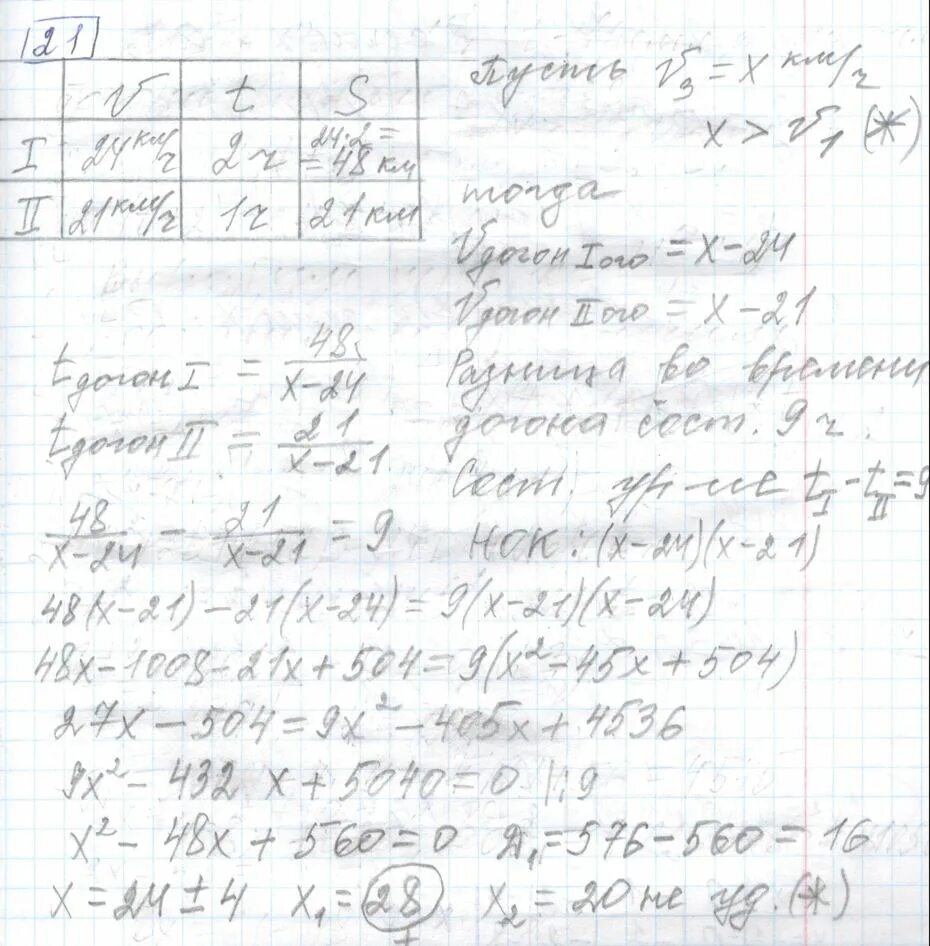 21
V t S
I 24 км/ч 2 ч 24·2 = = 48 км
II 21 км/ч 1 ч 21 км
Пусть V₃ = x км/ч
x > V₁ (*)
тогда
Vдогон Iого = x – 24
Vдогон IIого = x – 21
tдогон I = 48/(x–24)
Разница во времени
tдогон II = 21/(x–21)
догона сост. 9 ч.
Сост. ур–ие t_I – t_II = 9
48/(x–24) – 21/(x–21) = 9
НОК: (x–24)(x–21)
48(x–21) – 21(x–24) = 9(x–21)(x–24)
48x – 1008 – 21x + 504 = 9(x² – 45x + 504)
27x – 504 = 9x² – 405x + 4536
9x² – 432 x + 5040 = 0 |:9
x² – 48x + 560 = 0 Д₁ = 576 – 560 = 16
x = 24 ± 4 x₁ = 28 x₂ = 20 не уд. (*)